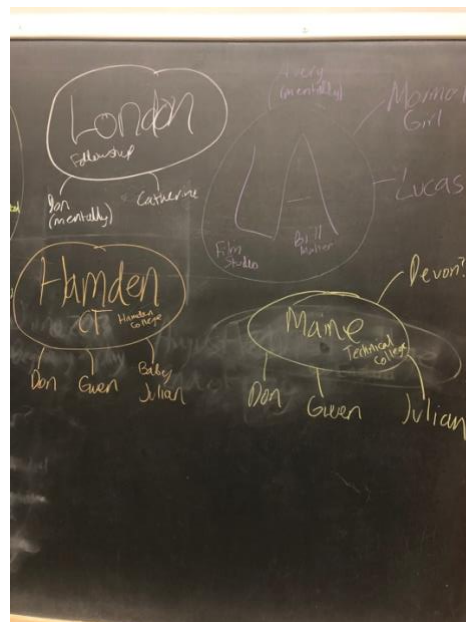 London
Fellowship
Don
(mentally)
Catherine
Avery
(mentally)
LA
Film
Studies
Girl
Lucas
Hamden
CT
Hamden
College
Don
Gwen
Baby
Julian
Devon?
Maine
Technical
College
Don
Gwen
Julian